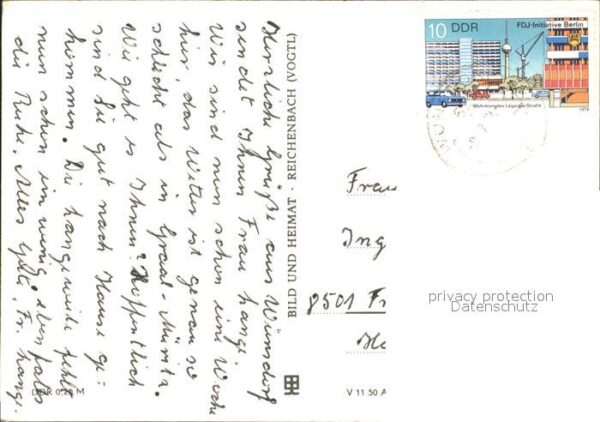 Herzliche Grüße aus Wünsdorf
sendet Ihnen Frau Lange.
Wir sind nun schon eine Woche
hier, das Wetter ist genau so
schlecht als in Graal-Müritz.
Wie geht es Ihnen? Hoffentlich
sind Sie gut nach Hause ge-
kommen. Die Langeweile fehlt
nun schon ein wenig, ebenfalls
die Ruhe. Alles Gute, Fr. Lange.
DDR 0,20 M
BILD UND HEIMAT · REICHENBACH (VOGTL)
V 11 50 A
10 DDR
FDJ-Initiative Berlin
Wohnkomplex Leipziger Straße
1979
Frau
Ing
8501 Fr
privacy protection
Datenschutz